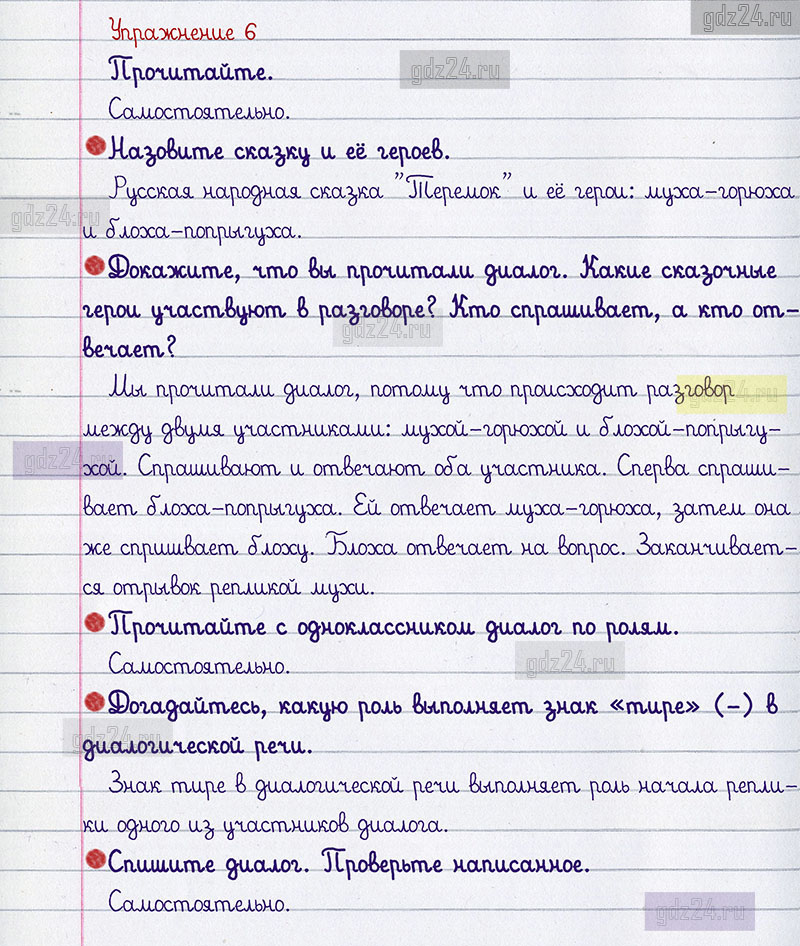 Упражнение 6
gdz24.ru
Прочитайте.
gdz24.ru
Самостоятельно.
Назовите сказку и её героев.
Русская народная сказка "Теремок" и её герои: муха-горюха
gdz24.ru
и блоха-попрыгуха.
Докажите, что вы прочитали диалог. Какие сказочные
герои участвуют в разговоре? Кто спрашивает, а кто от-
gdz24.ru
вечает?
Мы прочитали диалог, потому что происходит разговор
gdz24.ru
между двумя участниками: мухой-горюхой и блохой-попрыгу-
gdz24.ru
хой. Спрашивают и отвечают оба участника. Сперва спраши-
вает блоха-попрыгуха. Ей отвечает муха-горюха, затем она
же спришвает блоху. Блоха отвечает на вопрос. Заканчивает-
ся отрывок репликой мухи.
Прочитайте с одноклассником диалог по ролям.
Самостоятельно.
gdz24.ru
Догадайтесь, какую роль выполняет знак «тире» (-) в
gdz24.ru
диалогической речи.
Знак тире в диалогической речи выполняет роль начала репли-
ки одного из участников диалога.
Спишите диалог. Проверьте написанное.
Самостоятельно.
gdz24.ru